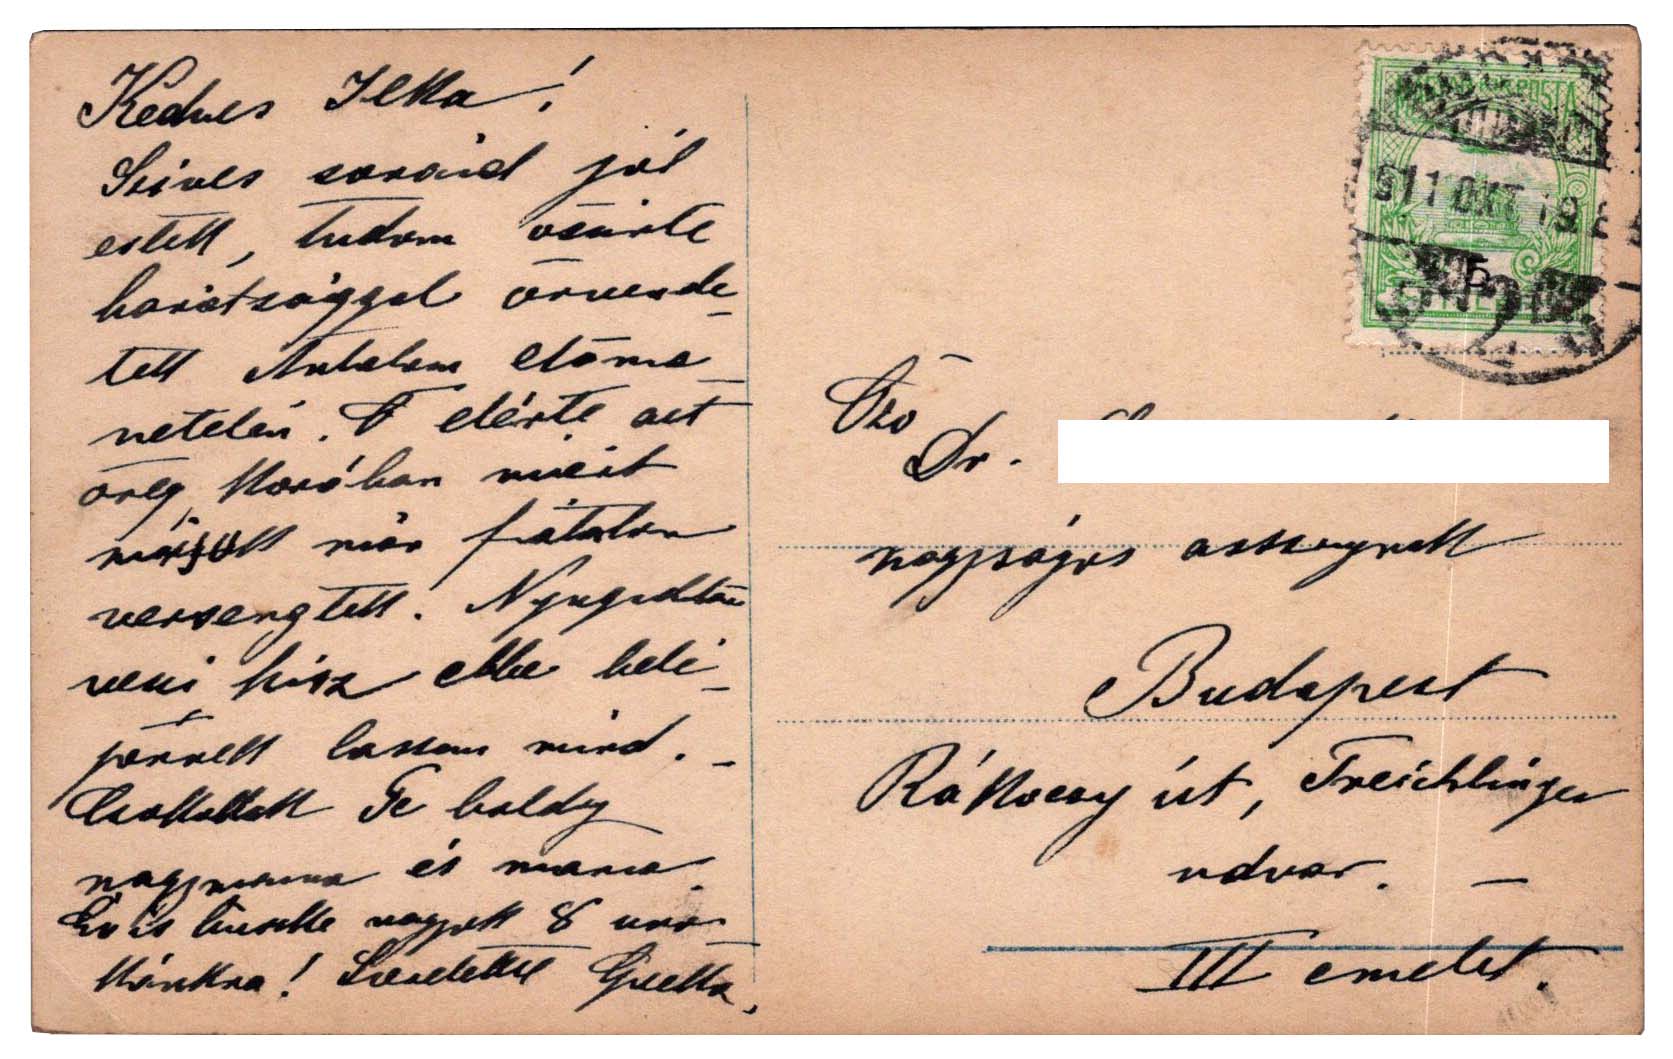 Kedves Ilka!
Szives soraid jól
estek, tudom őszinte
barátsággal örvende_
tek Antalom előme_
netelén. Ő elérte azt
öreg korában miért
mások már fiatalon
versengtek. Nyugodtan
veszi hisz ebbe belé_
jönnek lassan mind._
Csókollak Te boldog
nagymama és mama.
Én is büszke vagyok 8 uno
kánkra! Szeretettel Gizella,
MAGYAR POSTA
911 OKT 19
5
Özv
Dr.
nagyságos asszonynak
Budapest
Rákoczy út, Treichlinger
udvar. _
III emelet.